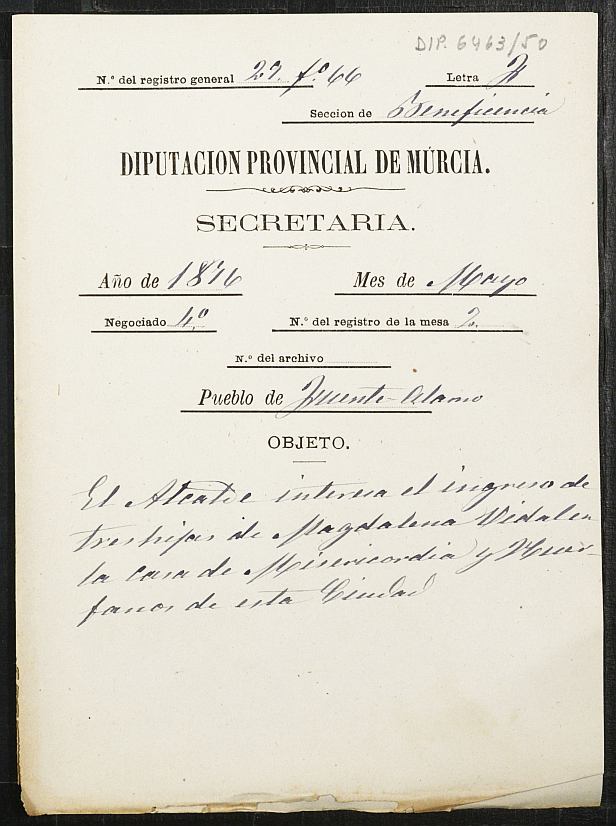 DIP. 6463/50
N.º del registro general 27. fº 66 Letra F
Seccion de Beneficencia
DIPUTACION PROVINCIAL DE MÚRCIA.
SECRETARIA.
Año de 1876 Mes de Mayo
Negociado 4.º N.º del registro de la mesa 2.
N.º del archivo
Pueblo de Fuente-Alamo
OBJETO.
El Alcalde interesa el ingreso de
tres hijas de Magdalena Vidal en
la casa de Misericordia y Huer-
fanos de esta Ciudad